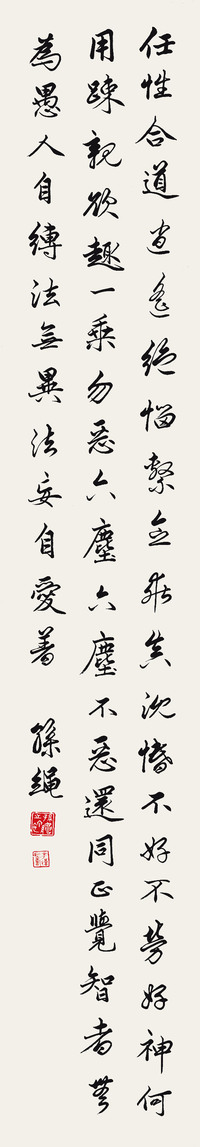 任性合道逍遙絕惱繫念乖真沈惛不好不勞好神何
用踈親欲趣一乘勿惡六塵六塵不惡還同正覺智者無
為愚人自縛法無異法妄自愛著
孫繩